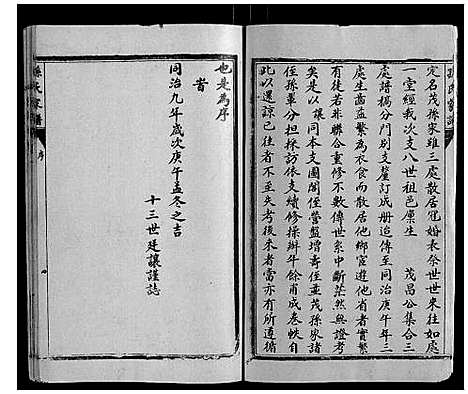 定名茂孫家雖三處散居冠婚表祭世世來往如處
一堂經我次支八世祖邑廩生 茂昌公集合三
處譜稿分門別支釐訂成册迨傳至同治庚午年三
處生齒益繁為衣食而散居他鄉宦遊他省者實繁
有徒若非聯合重修不數傳世系中斷茫然無證考
矣是以讓同本支國閣侄營盤增壽侄並茂孫家諸
侄孫輩分担採訪依支續修採辦年餘甫成卷帙自
此以還諒已往者不至失考後來者當亦有所遵循
也是為序
旹
同治九年歲次庚午孟冬之吉
十三世廷讓謹誌
孫氏家譜
序
孫氏家譜